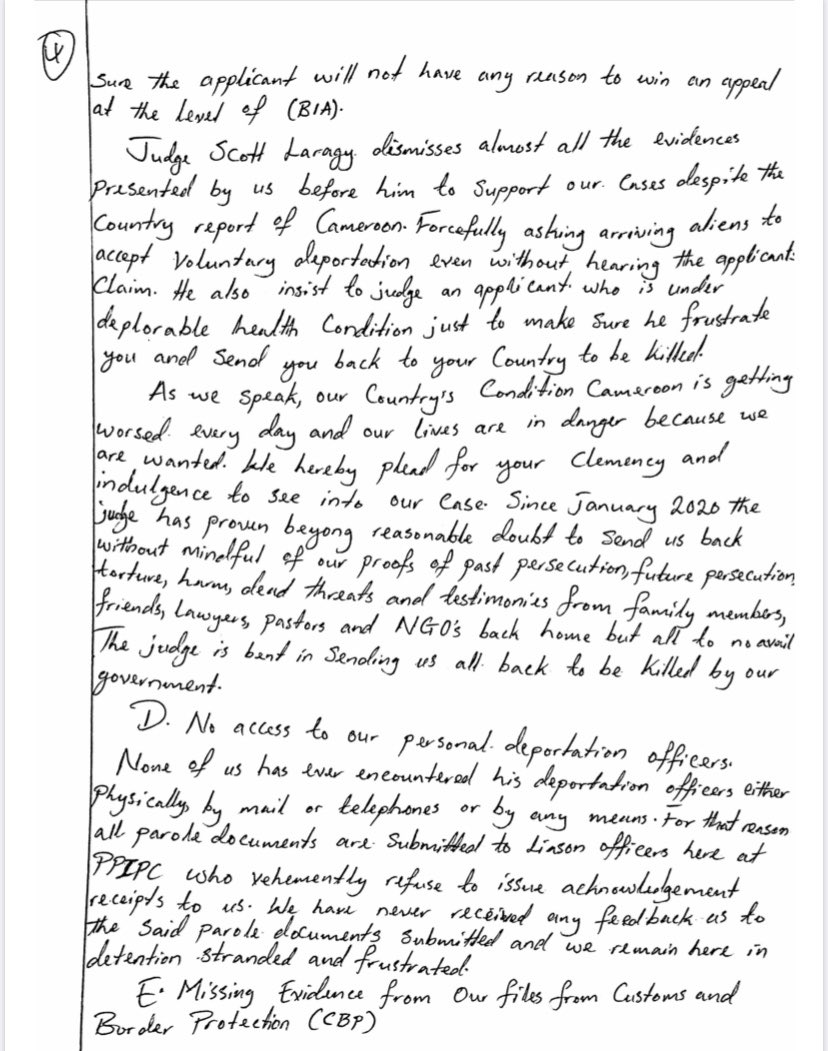 4
Sure the applicant will not have any reason to win an appeal
at the level of (BIA).
Judge Scott Laragy dismisses almost all the evidences
Presented by us before him to Support our Cases despite the
Country report of Cameroon. Forcefully asking arriving aliens to
accept Voluntary deportation even without hearing the applicants
Claim. He also insist to judge an applicant who is under
deplorable health Condition just to make Sure he frustrate
you and Send you back to your Country to be killed.
As we speak, our Country's Condition Cameroon is getting
worsed every day and our lives are in danger because we
are wanted. We hereby plead for your Clemency and
indulgence to see into our Case. Since January 2020 the
judge has proven beyong reasonable doubt to Send us back
without mindful of our proofs of past persecution, future persecution,
torture, harm, dead threats and testimonies from family members,
friends, Lawyers, pastors and NGO's back home but all to no avail
The judge is bent in Sending us all back to be killed by our
government.
D. No access to our personal deportation officers.
None of us has ever encountered his deportation officers either
Physically, by mail or telephones or by any means. For that reason
all parole documents are Submitted to Liason officers here at
PPIPC who vehemently refuse to issue acknowledgement
receipts to us. We have never received any feedback as to
the Said parole documents Submitted and we remain here in
detention stranded and frustrated.
E. Missing Evidence from Our files from Customs and
Border Protection (CBP)